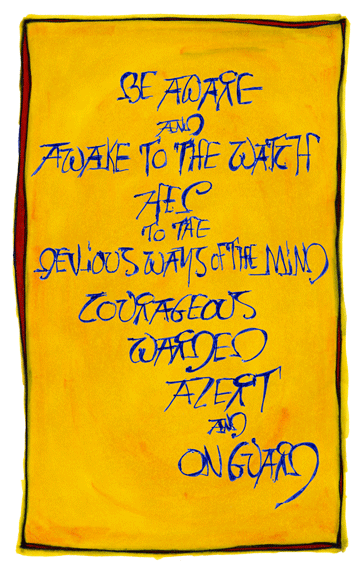 BE AWARE
AND
AWAKE TO THE WATCH
TO THE
DEVIOUS WAYS OF THE MIND
COURAGEOUS
WARDED
ALERT
AND
ON GUARD